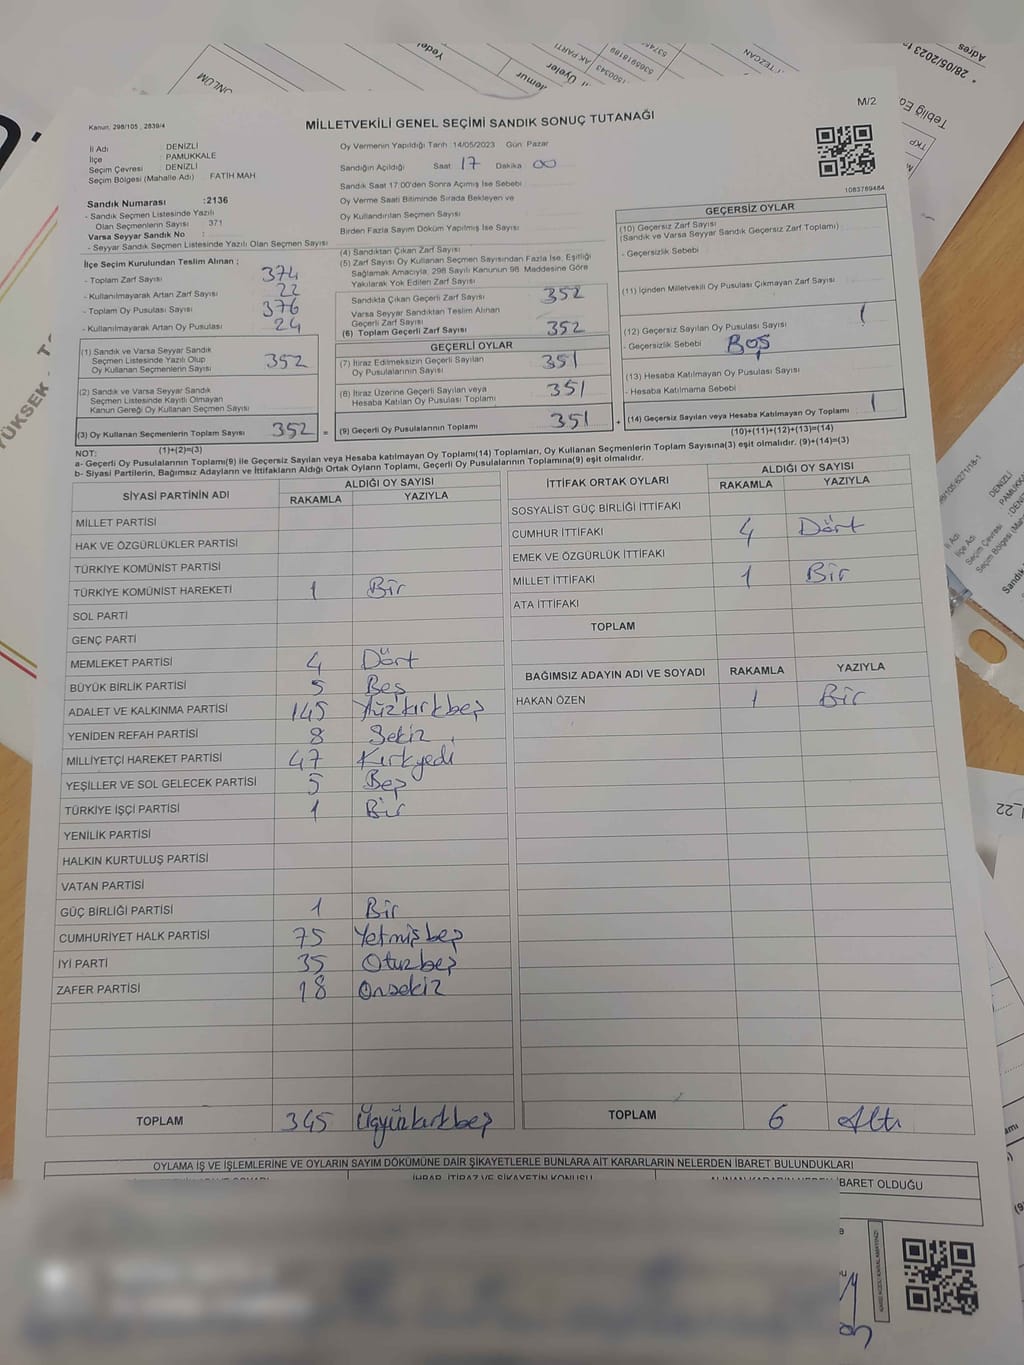 YÜKSEK
ÜNLÜM
Yedel
Üyeler
AK PARTİ
TEZCAN
* 28/05/2023
Adres
Tebliğ
TKP
M/2
Kanun, 298/105 , 2839/4
MİLLETVEKİLİ GENEL SEÇİMİ SANDIK SONUÇ TUTANAĞI
İl Adı : DENİZLİ
İlçe : PAMUKKALE
Seçim Çevresi : DENİZLİ
Seçim Bölgesi (Mahalle Adı) FATİH MAH
Oy Vermenin Yapıldığı Tarih :14/05/2023 Gün Pazar
Sandığın Açıldığı Saat 17 Dakika 00
Sandık Saat 17:00'den Sonra Açımış İse Sebebi
1083769484
Sandık Numarası :2136
- Sandık Seçmen Listesinde Yazılı
Olan Seçmenlerin Sayısı 371
Varsa Seyyar Sandık No :
- Seyyar Sandık Seçmen Listesinde Yazılı Olan Seçmen Sayısı
Oy Verme Saati Bitiminde Sırada Bekleyen ve
Oy Kullandırılan Seçmen Sayısı
Birden Fazla Sayım Döküm Yapılmış İse Sayısı
İlçe Seçim Kurulundan Teslim Alınan ;
- Toplam Zarf Sayısı 374
- Kullanılmayarak Artan Zarf Sayısı 22
- Toplam Oy Pusulası Sayısı 376
- Kullanılmayarak Artan Oy Pusulası 24
(1) Sandık ve Varsa Seyyar Sandık
Seçmen Listesinde Yazılı Olup
Oy Kullanan Seçmenlerin Sayısı 352
(2) Sandık ve Varsa Seyyar Sandık
Seçmen Listesinde Kayıtlı Olmayan
Kanun Gereği Oy Kullanan Seçmen Sayısı
(3) Oy Kullanan Seçmenlerin Toplam Sayısı 352 =
(1)+(2)=(3)
(4) Sandıktan Çıkan Zarf Sayısı
(5) Zarf Sayısı Oy Kullanan Seçmen Sayısından Fazla İse, Eşitliği
Sağlamak Amacıyla, 298 Sayılı Kanunun 98. Maddesine Göre
Yakılarak Yok Edilen Zarf Sayısı
Sandıkta Çıkan Geçerli Zarf Sayısı 352
Varsa Seyyar Sandıktan Teslim Alınan
Geçerli Zarf Sayısı
(6) Toplam Geçerli Zarf Sayısı 352
GEÇERLİ OYLAR
(7) İtiraz Edilmeksizin Geçerli Sayılan
Oy Pusulalarının Sayısı 351
(8) İtiraz Üzerine Geçerli Sayılan veya
Hesaba Katılan Oy Pusulası Toplamı 351
(9) Geçerli Oy Pusulalarının Toplamı 351 +
GEÇERSİZ OYLAR
(10) Geçersiz Zarf Sayısı
(Sandık ve Varsa Seyyar Sandık Geçersiz Zarf Toplamı)
- Geçersizlik Sebebi
(11) İçinden Milletvekili Oy Pusulası Çıkmayan Zarf Sayısı
(12) Geçersiz Sayılan Oy Pusulası Sayısı 1
- Geçersizlik Sebebi Boş
(13) Hesaba Katılmayan Oy Pusulası Sayısı
- Hesaba Katılmama Sebebi
(14) Geçersiz Sayılan veya Hesaba Katılmayan Oy Toplamı 1
(10)+(11)+(12)+(13)=(14)
NOT:
a- Geçerli Oy Pusulalarının Toplamı(9) ile Geçersiz Sayılan veya Hesaba katılmayan Oy Toplamı(14) Toplamları, Oy Kullanan Seçmenlerin Toplam Sayısına(3) eşit olmalıdır. (9)+(14)=(3)
b- Siyasi Partilerin, Bağımsız Adayların ve İttifakların Aldığı Ortak Oyların Toplamı, Geçerli Oy Pusulalarının Toplamına(9) eşit olmalıdır.
SİYASİ PARTİNİN ADI ALDIĞI OY SAYISI
RAKAMLA YAZIYLA
MİLLET PARTİSİ
HAK VE ÖZGÜRLÜKLER PARTİSİ
TÜRKİYE KOMÜNİST PARTİSİ
TÜRKİYE KOMÜNİST HAREKETİ 1 Bir
SOL PARTİ
GENÇ PARTİ
MEMLEKET PARTİSİ 4 Dört
BÜYÜK BİRLİK PARTİSİ 5 Beş
ADALET VE KALKINMA PARTİSİ 145 Yüzkırkbeş
YENİDEN REFAH PARTİSİ 8 Sekiz
MİLLİYETÇİ HAREKET PARTİSİ 47 Kırkyedi
YEŞİLLER VE SOL GELECEK PARTİSİ 5 Beş
TÜRKİYE İŞÇİ PARTİSİ 1 Bir
YENİLİK PARTİSİ
HALKIN KURTULUŞ PARTİSİ
VATAN PARTİSİ
GÜÇ BİRLİĞİ PARTİSİ 1 Bir
CUMHURİYET HALK PARTİSİ 75 Yetmişbeş
İYİ PARTİ 35 Otuzbeş
ZAFER PARTİSİ 18 Onsekiz
TOPLAM 345 Üçyüzkırkbeş
İTTİFAK ORTAK OYLARI ALDIĞI OY SAYISI
RAKAMLA YAZIYLA
SOSYALİST GÜÇ BİRLİĞİ İTTİFAKI
CUMHUR İTTİFAKI 4 Dört
EMEK VE ÖZGÜRLÜK İTTİFAKI
MİLLET İTTİFAKI 1 Bir
ATA İTTİFAKI
TOPLAM
BAĞIMSIZ ADAYIN ADI VE SOYADI RAKAMLA YAZIYLA
HAKAN ÖZEN 1 Bir
TOPLAM 6 Altı
OYLAMA İŞ VE İŞLEMLERİNE VE OYLARIN SAYIM DÖKÜMÜNE DAİR ŞİKAYETLERLE BUNLARA AİT KARARLARIN NELERDEN İBARET BULUNDUKLARI
İHBAR, İTİRAZ VE ŞİKAYETİN KONUSU
İBARET OLDUĞU
İl Adı
DENİZLİ
İlçe Adı
Seçim Çevresi
Seçim Bölgesi (Mahalle
Sandık